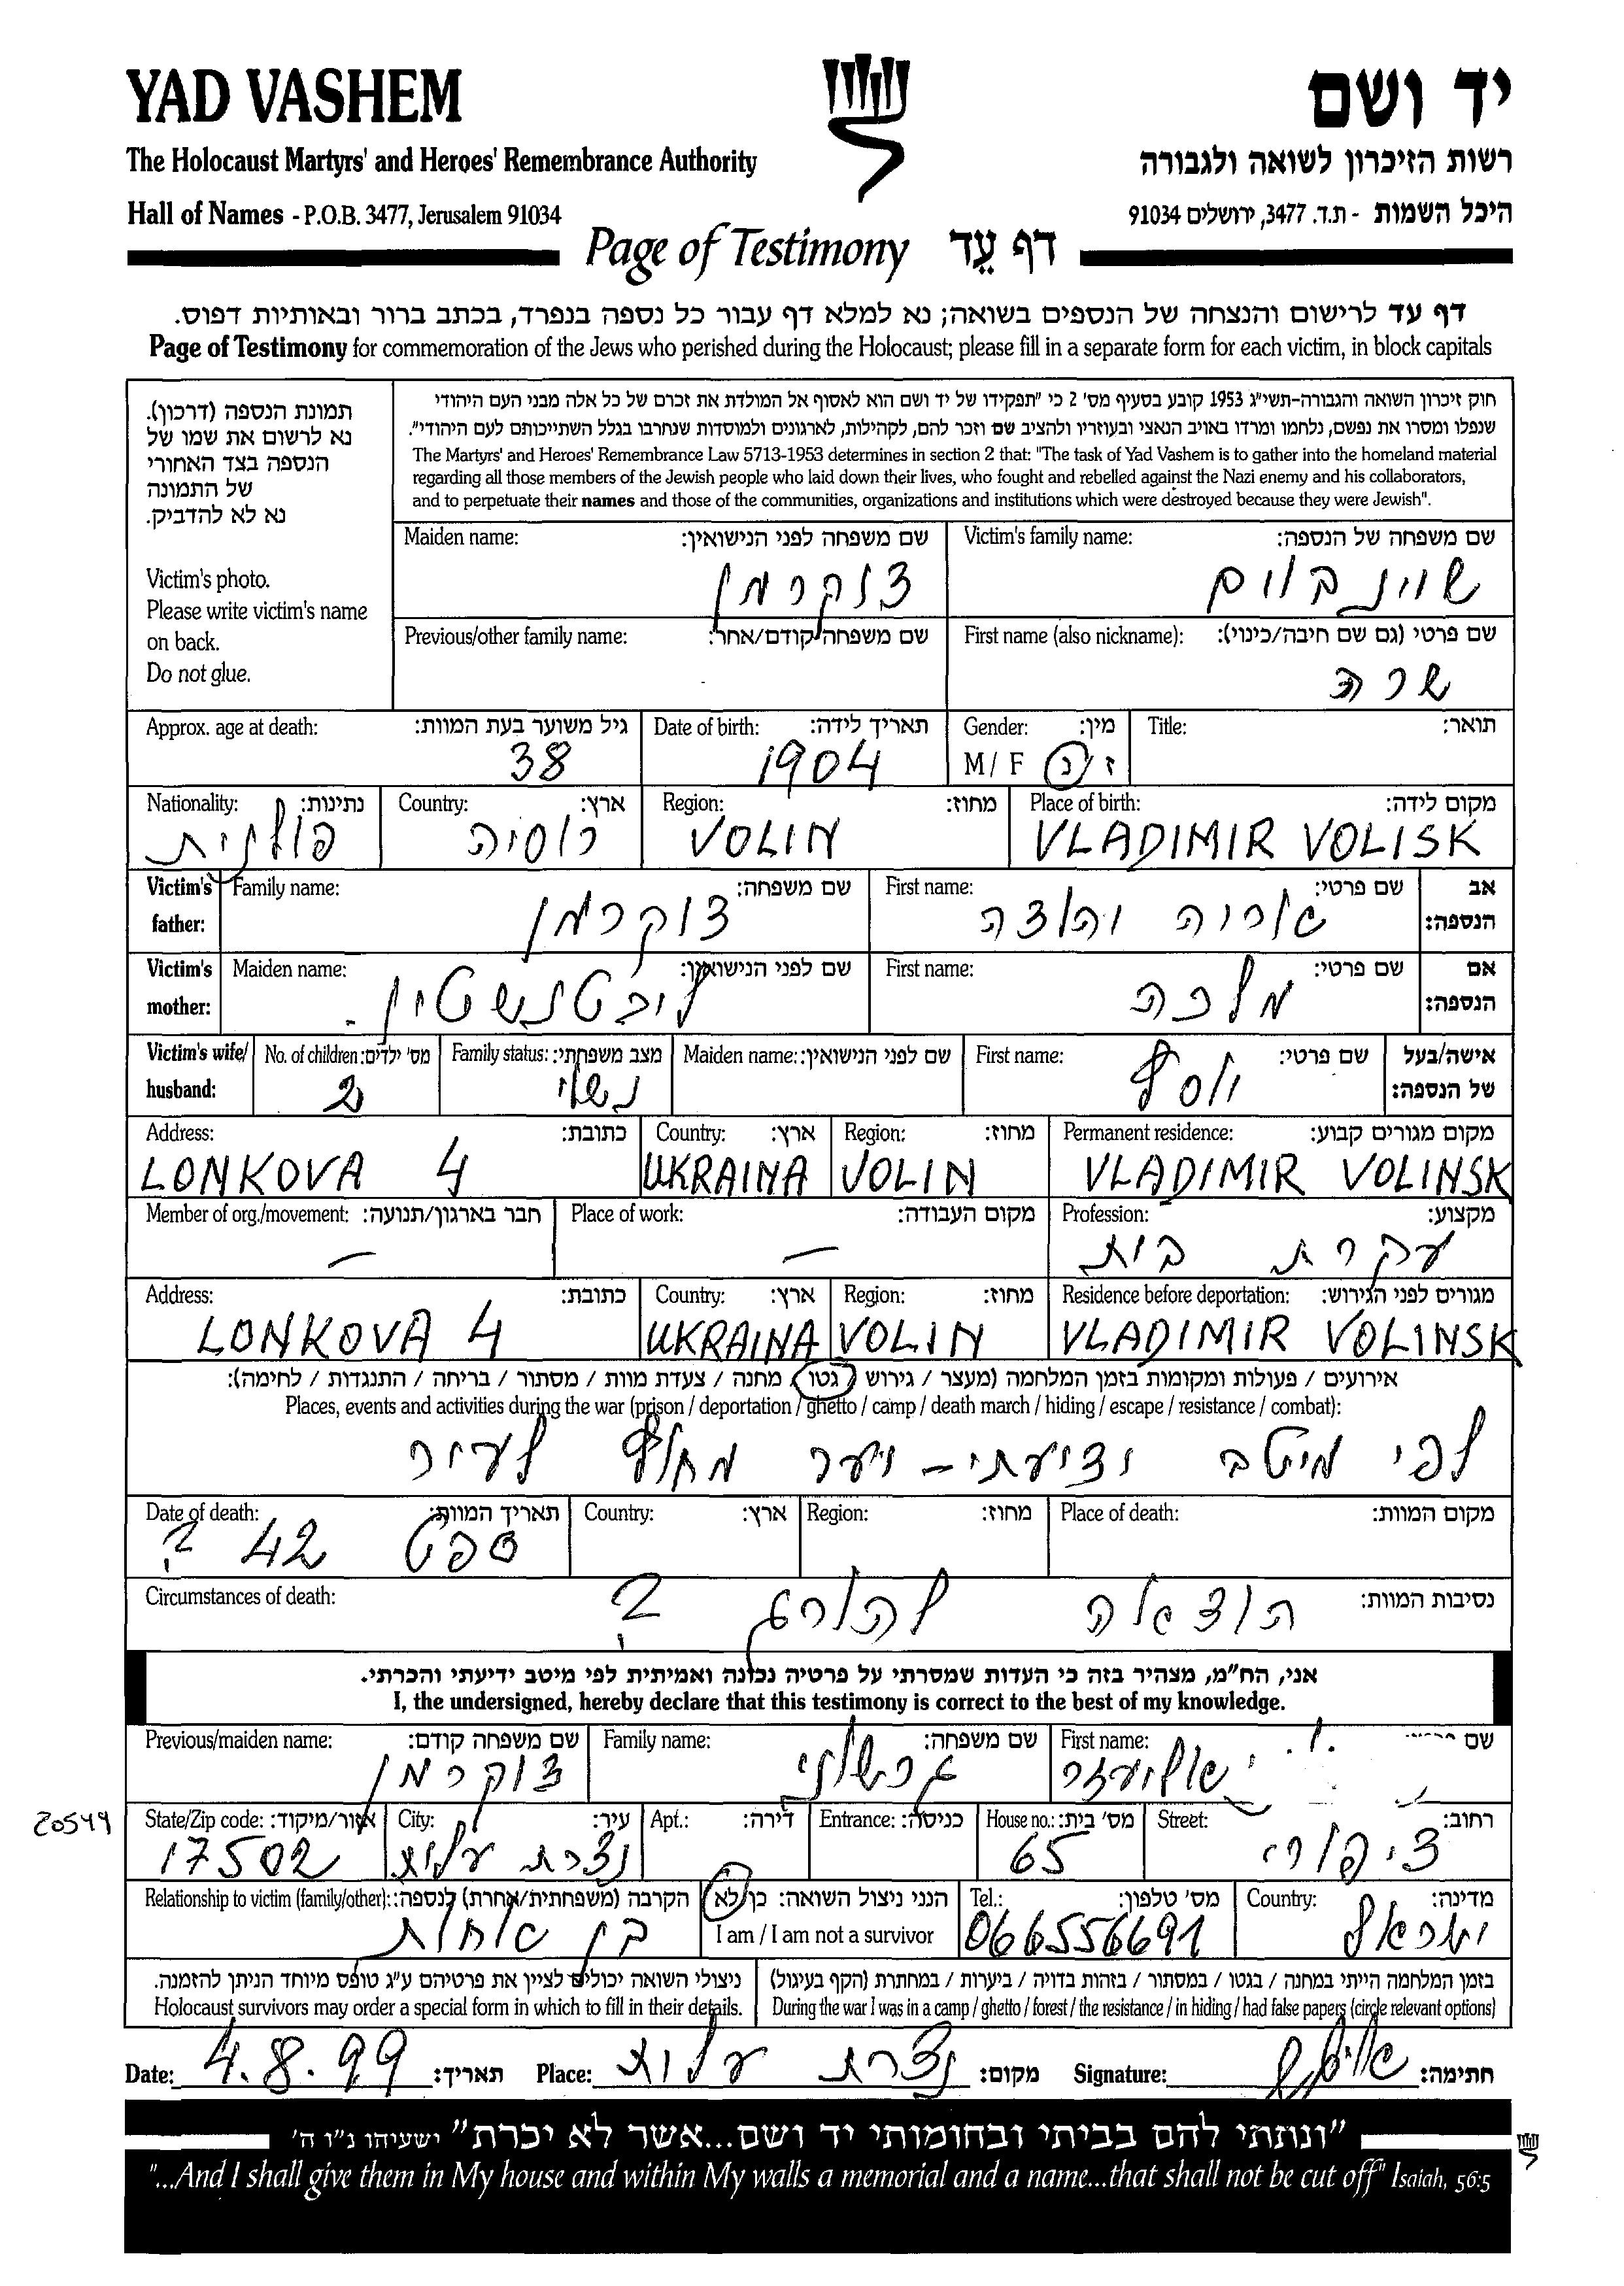 YAD VASHEM
יד ושם
The Holocaust Martyrs' and Heroes' Remembrance Authority
רשות הזיכרון לשואה ולגבורה
Hall of Names - P.O.B. 3477, Jerusalem 91034
היכל השמות - ת.ד. 3477, ירושלים 91034
Page of Testimony דף עֵד
דף עד לרישום והנצחה של הנספים בשואה; נא למלא דף עבור כל נספה בנפרד, בכתב ברור ובאותיות דפוס.
Page of Testimony for commemoration of the Jews who perished during the Holocaust; please fill in a separate form for each victim, in block capitals
תמונת הנספה (דרכון).
נא לרשום את שמו של
הנספה בצד האחורי
של התמונה
נא לא להדביק.
Victim's photo.
Please write victim's name
on back.
Do not glue.
חוק זיכרון השואה והגבורה-תשי"ג 1953 קובע בסעיף מס' 2 כי "תפקידו של יד ושם הוא לאסוף אל המולדת את זכרם של כל אלה מבני העם היהודי
שנפלו ומסרו את נפשם, נלחמו ומרדו באויב הנאצי ובעוזריו ולהציב שם וזכר להם, לקהילות, לארגונים ולמוסדות שנחרבו בגלל השתייכותם לעם היהודי".
The Martyrs' and Heroes' Remembrance Law 5713-1953 determines in section 2 that: "The task of Yad Vashem is to gather into the homeland material
regarding all those members of the Jewish people who laid down their lives, who fought and rebelled against the Nazi enemy and his collaborators,
and to perpetuate their names and those of the communities, organizations and institutions which were destroyed because they were Jewish".
Victim's family name: שם משפחה של הנספה:
שוינבוים
Maiden name: שם משפחה לפני הנישואין:
צוקרמן
First name (also nickname): שם פרטי (גם שם חיבה/כינוי):
שרה
Previous/other family name: שם משפחה קודם/אחר:
-
Title: תואר:
Gender: מין:
M / F ז/נ
Date of birth: תאריך לידה:
1904
Approx. age at death: גיל משוער בעת המוות:
38
Place of birth: מקום לידה:
VLADIMIR VOLISK
Region: מחוז:
VOLIN
Country: ארץ:
רוסיה
Nationality: נתינות:
פולנית
Victim's father: אב הנספה:
First name: שם פרטי:
אריה
Family name: שם משפחה:
צוקרמן
Victim's mother: אם הנספה:
First name: שם פרטי:
מלכה
Maiden name: שם לפני הנישואין:
ליבטנשטיין -
Victim's wife/ husband: אישה/בעל של הנספה:
First name: שם פרטי:
יוסף
Maiden name: שם לפני הנישואין:
Family status: מצב משפחתי:
נשוי
No. of children: מס' ילדים:
2
Permanent residence: מקום מגורים קבוע:
VLADIMIR VOLINSK
Region: מחוז:
VOLIN
Country: ארץ:
UKRAINA
Address: כתובת:
LONKOVA 4
Profession: מקצוע:
עקרת בית
Place of work: מקום העבודה:
—
Member of org./movement: חבר בארגון/תנועה:
—
Residence before deportation: מגורים לפני הגירוש:
VLADIMIR VOLINSK
Region: מחוז:
VOLIN
Country: ארץ:
UKRAINA
Address: כתובת:
LONKOVA 4
אירועים / פעולות ומקומות בזמן המלחמה (מעצר / גירוש / גטו / מחנה / צעדת מוות / מסתור / בריחה / התנגדות / לחימה):
Places, events and activities during the war (prison / deportation / ghetto / camp / death march / hiding / escape / resistance / combat):
לפי מיטב ידיעתי - יער מחוץ לעיר
Place of death: מקום המוות:
Region: מחוז:
Country: ארץ:
Date of death: תאריך המוות:
ספט 42 ?
Circumstances of death: נסיבות המוות:
הוצאה להורג ?
אני, הח"מ, מצהיר בזה כי העדות שמסרתי על פרטיה נכונה ואמיתית לפי מיטב ידיעתי והכרתי.
I, the undersigned, hereby declare that this testimony is correct to the best of my knowledge.
First name: שם
אליעזר
Family name: שם משפחה:
גרשוני
Previous/maiden name: שם משפחה קודם:
צוקרמן
Street: רחוב:
ציפורי
House no.: מס' בית:
65
Entrance: כניסה:
Apt.: דירה:
City: עיר:
נצרת עלית
State/Zip code: אזור/מיקוד:
17502
20549
Country: מדינה:
ישראל
Tel.: מס' טלפון:
066556691
הנני ניצול השואה: כן/לא
I am / I am not a survivor
Relationship to victim (family/other): הקרבה (משפחתית/אחרת) לנספה:
בן אחות
בזמן המלחמה הייתי במחנה / בגטו / במסתור / בזהות בדויה / ביערות / במחתרת (הקף בעיגול)
During the war I was in a camp / ghetto / forest / the resistance / in hiding / had false papers (circle relevant options)
ניצולי השואה יכולים לציין את פרטיהם ע"ג טופס מיוחד הניתן להזמנה.
Holocaust survivors may order a special form in which to fill in their details.
Date: 4.8.99 תאריך: Place: נצרת עלית מקום: Signature: חתימה:
"ונתתי להם בביתי ובחומותי יד ושם...אשר לא יכרת" ישעיהו נ"ו ה'
"...And I shall give them in My house and within My walls a memorial and a name...that shall not be cut off" Isaiah, 56:5